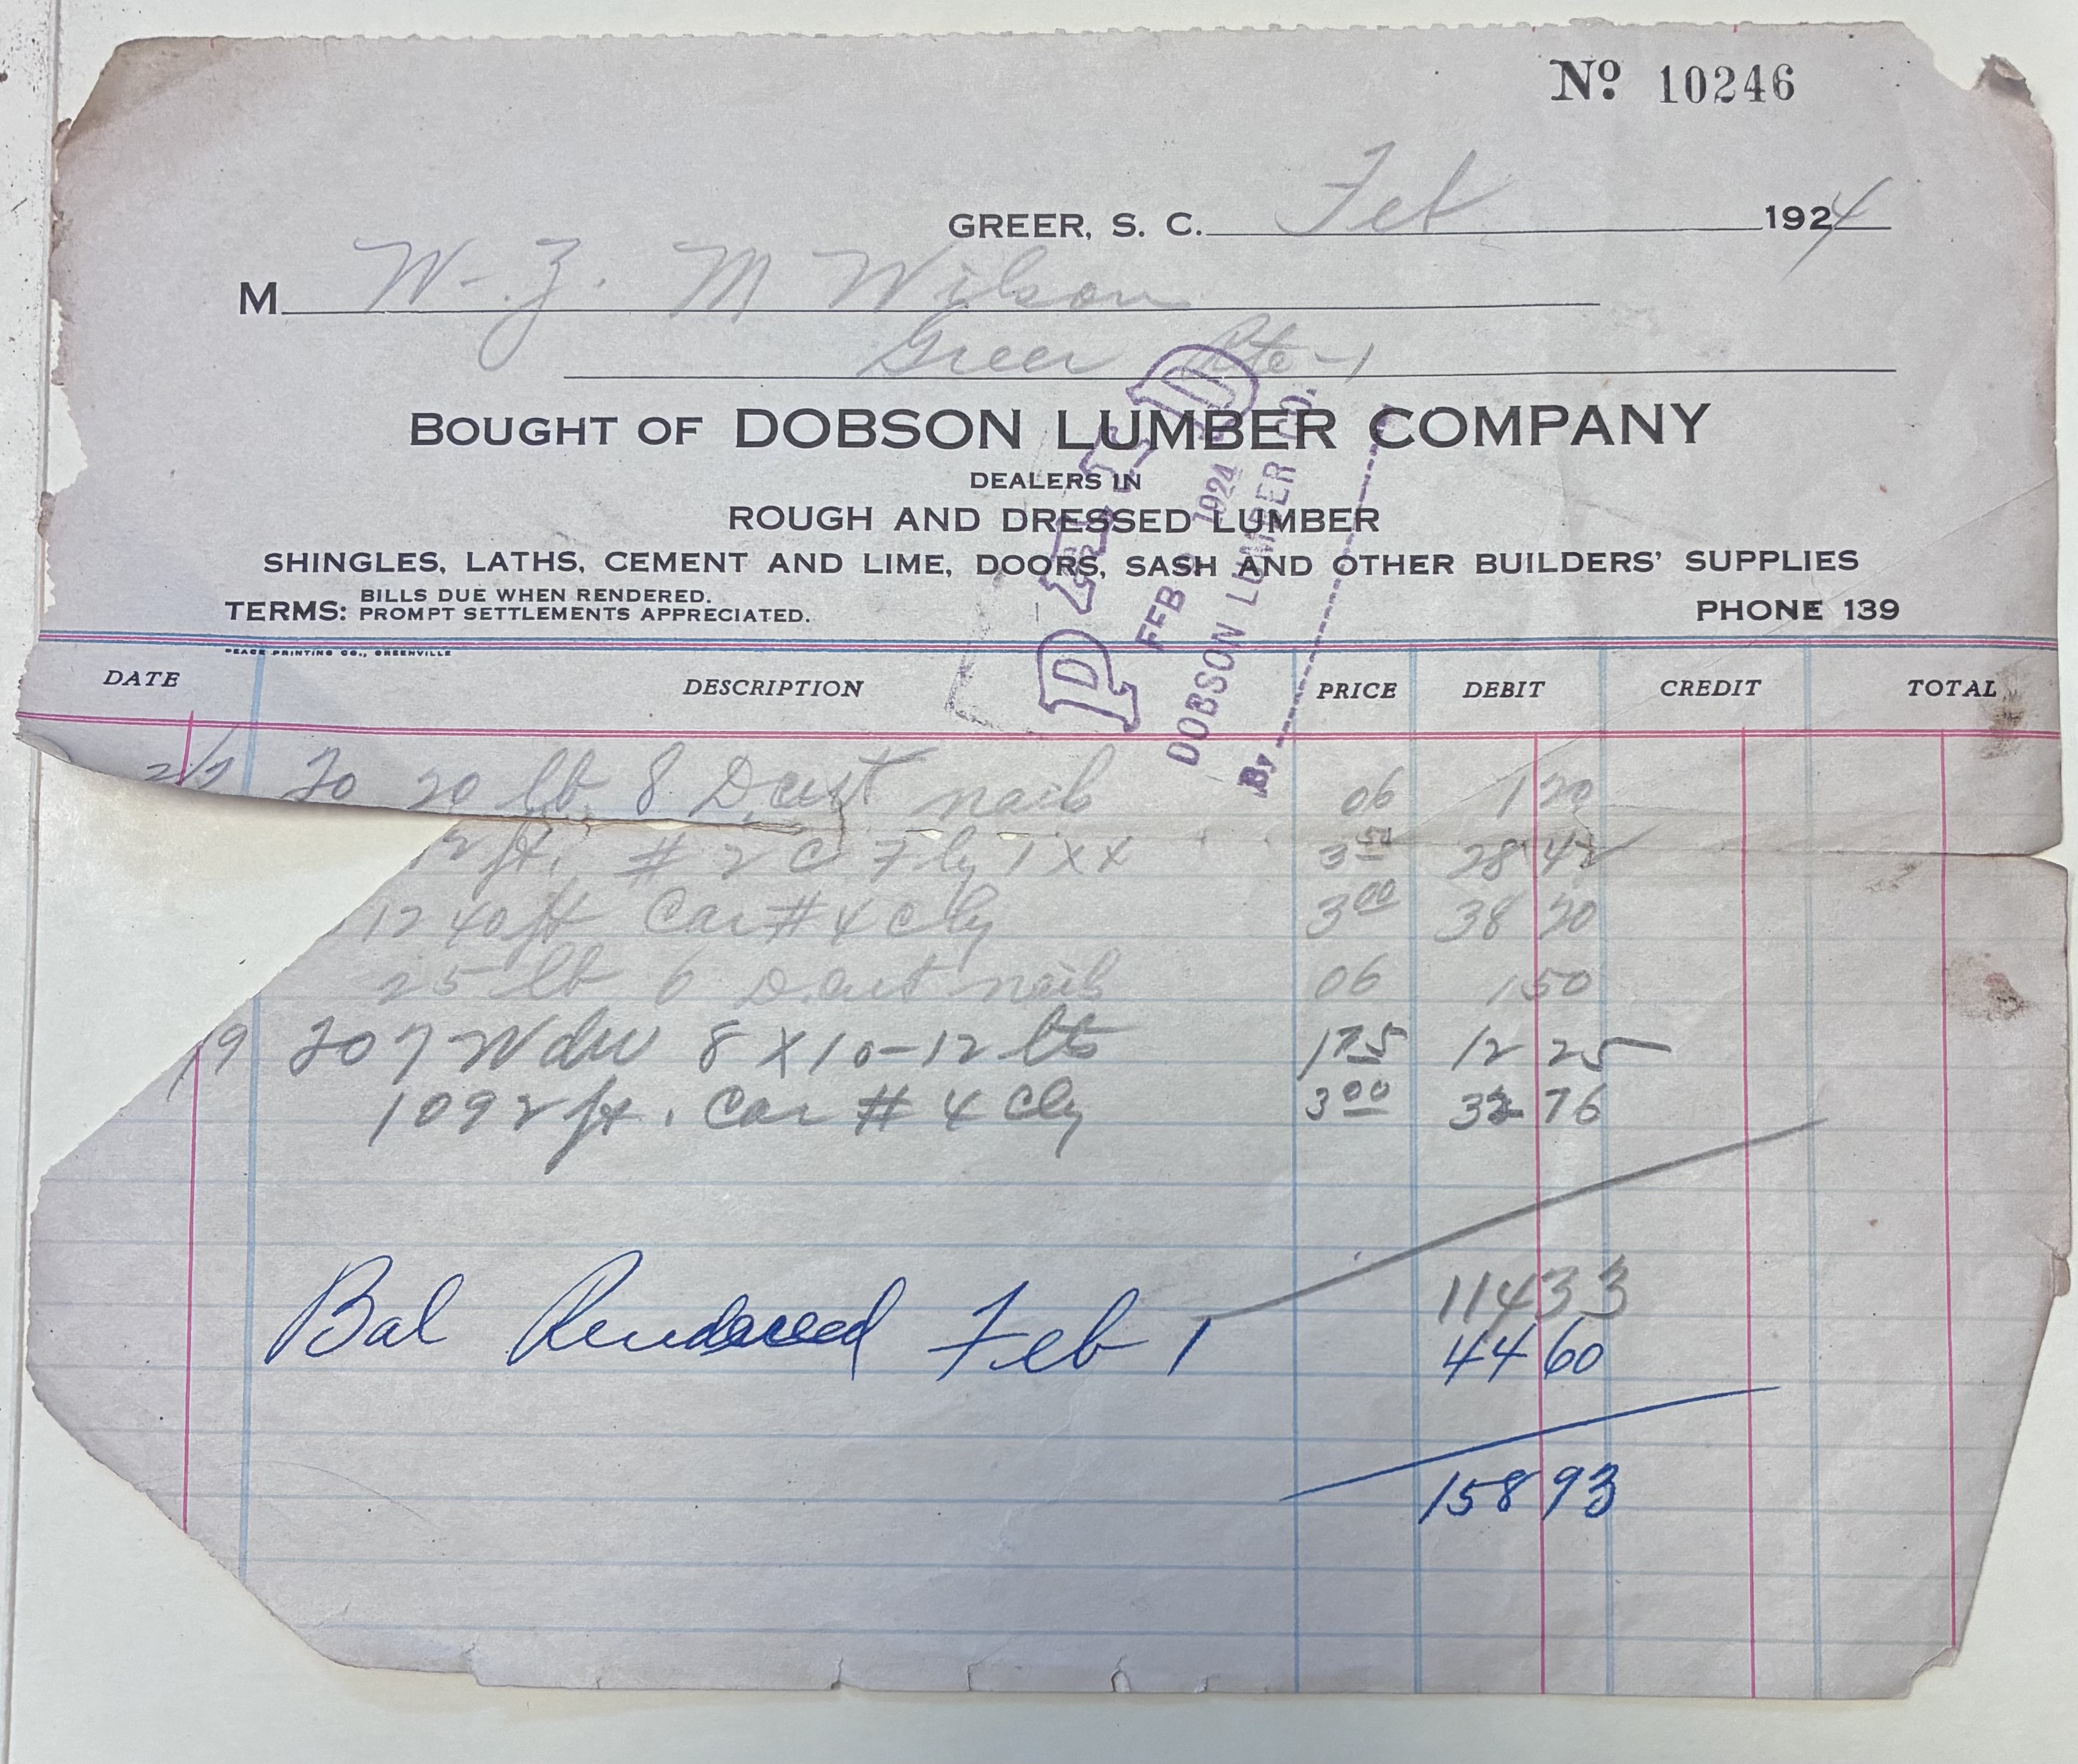 Nº 10246
GREER, S. C. Feb 1924
M W. Z. M Wilson
Greer Rte-1
BOUGHT OF DOBSON LUMBER COMPANY
DEALERS IN
ROUGH AND DRESSED LUMBER
SHINGLES, LATHS, CEMENT AND LIME, DOORS, SASH AND OTHER BUILDERS' SUPPLIES
TERMS: BILLS DUE WHEN RENDERED.
PROMPT SETTLEMENTS APPRECIATED.
PHONE 139
PEACE PRINTING CO., GREENVILLE
PAID
FEB 1924
DOBSON LUMBER CO.
By
DATE DESCRIPTION PRICE DEBIT CREDIT TOTAL
20 lb 8 D cut nails 06 1 20
12 ft. # 2 C Flg 1 x x 3 50 28 42
1240 ft Car # 4 Clg 3 00 38 20
25 lb 6 D. cut nails 06 1 50
19 207 Wdw 8 X 10-12 lts 1 75 12 25
1092 ft. Car # 4 Clg 3 00 32 76
114 33
Bal Rendered Feb 1 44 60
158 93